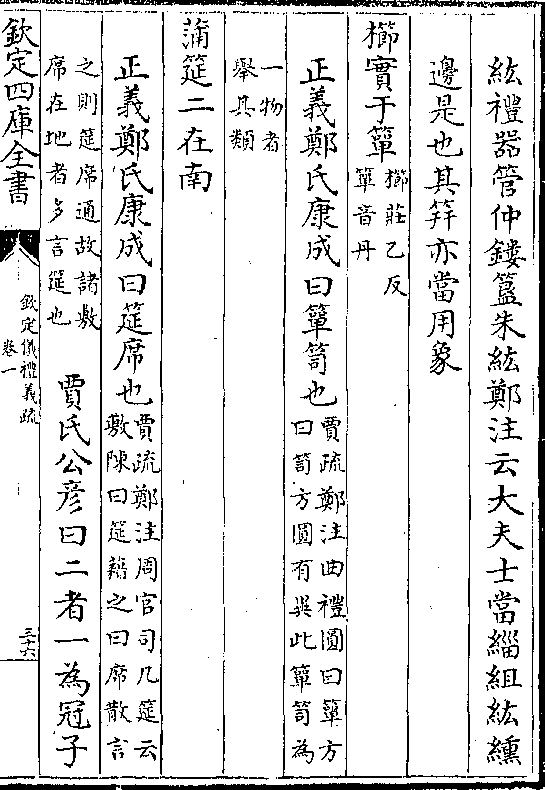 紘禮器管仲鏤簋朱紘鄭注云大夫士當緇組紘纁
邊是也其笄亦當用象
櫛實于簞
櫛莊乙反
簞音丹
正義鄭氏康成曰簞笥也
賈疏鄭注曲禮圓曰簞方
曰笥方圓有異此簞笥為
一物者
舉其類
蒲筵二在南
正義鄭氏康成曰筵席也
賈疏鄭注周官司几筵云
敷陳曰筵藉之曰席散言
之則筵席通故諸敷
席在地者多言筵也
賈氏公彦曰二者一為冠子
欽定四庫全書
欽定儀禮義疏
卷一
三十六